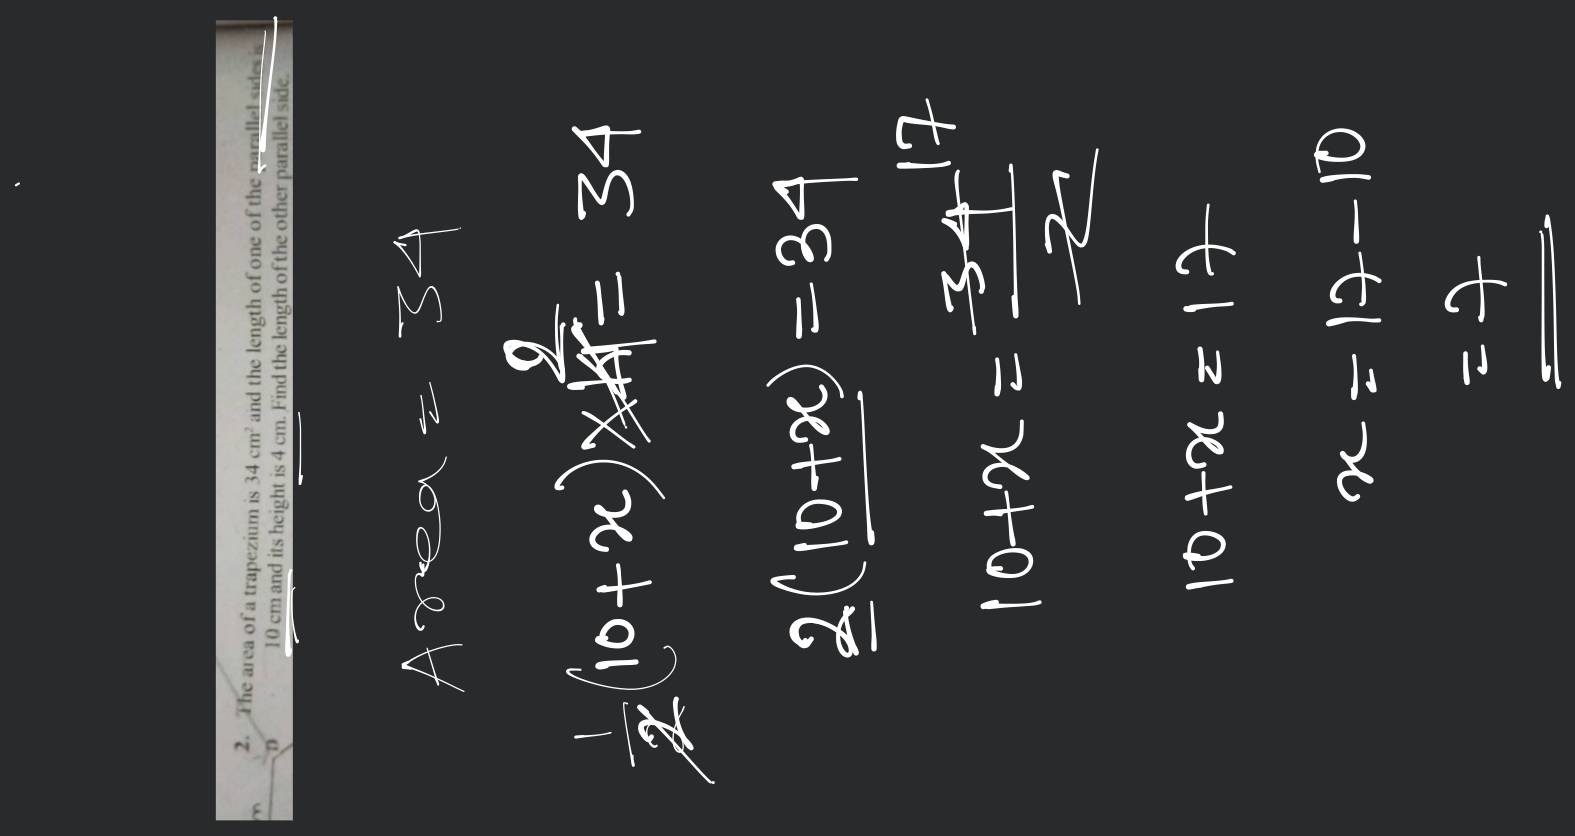 2. The area of a trapezium is 34 cm² and the length of one of the parallel sides is
10 cm and its height is 4 cm. Find the length of the other parallel side.
n
Area = 34
1/2 (10+x) × 4 = 34
2
2(10+x) = 34
10+x = 34/2
17
10+x = 17
x = 17-10
= 7